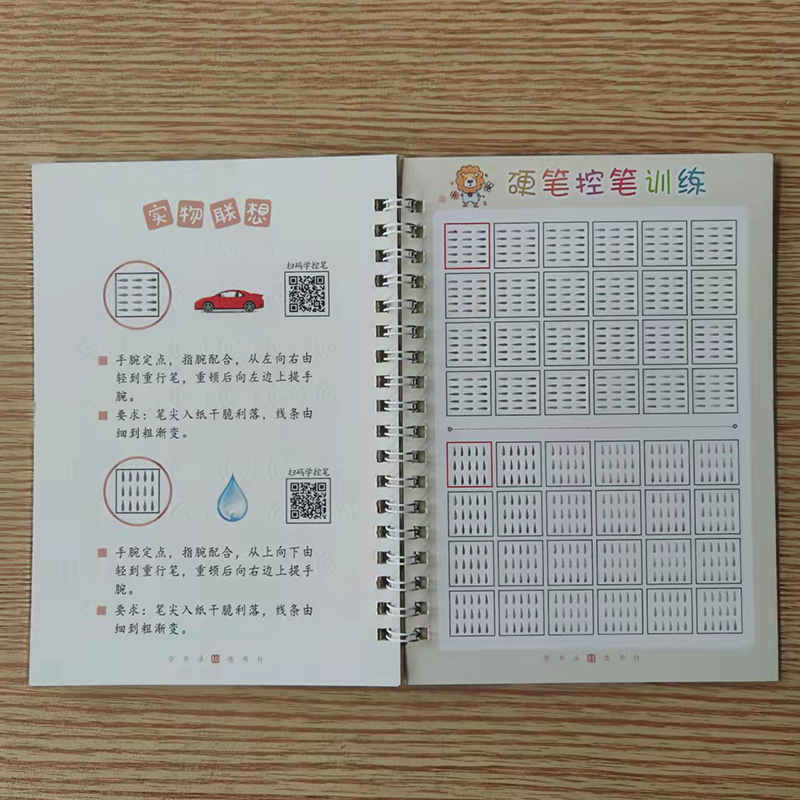 实物联想
扫码学控笔
手腕定点，指腕配合，从左向右由
轻到重行笔，重顿后向左边上提手
腕。
要求：笔尖入纸干脆利落，线条由
细到粗渐变。
扫码学控笔
手腕定点，指腕配合，从上向下由
轻到重行笔，重顿后向右边上提手
腕。
要求：笔尖入纸干脆利落，线条由
细到粗渐变。
学书法 10 选书行
硬笔控笔训练
学书法 11 选书行